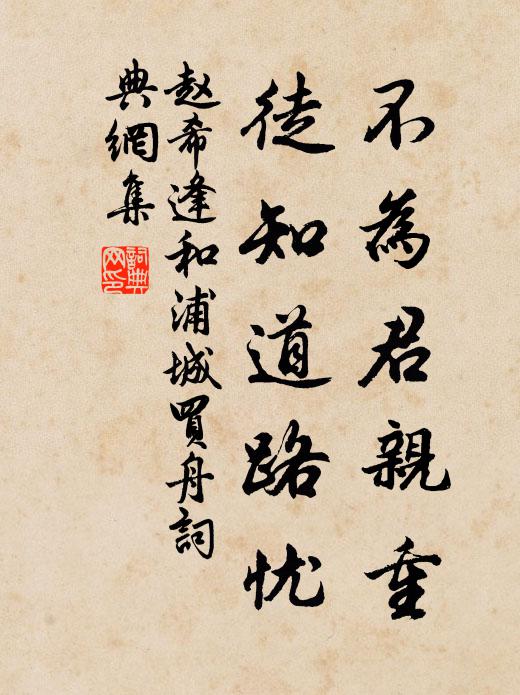 不為君親重
徒知道路忧
赵希逢和浦城買舟詞
典網集
詞典网印